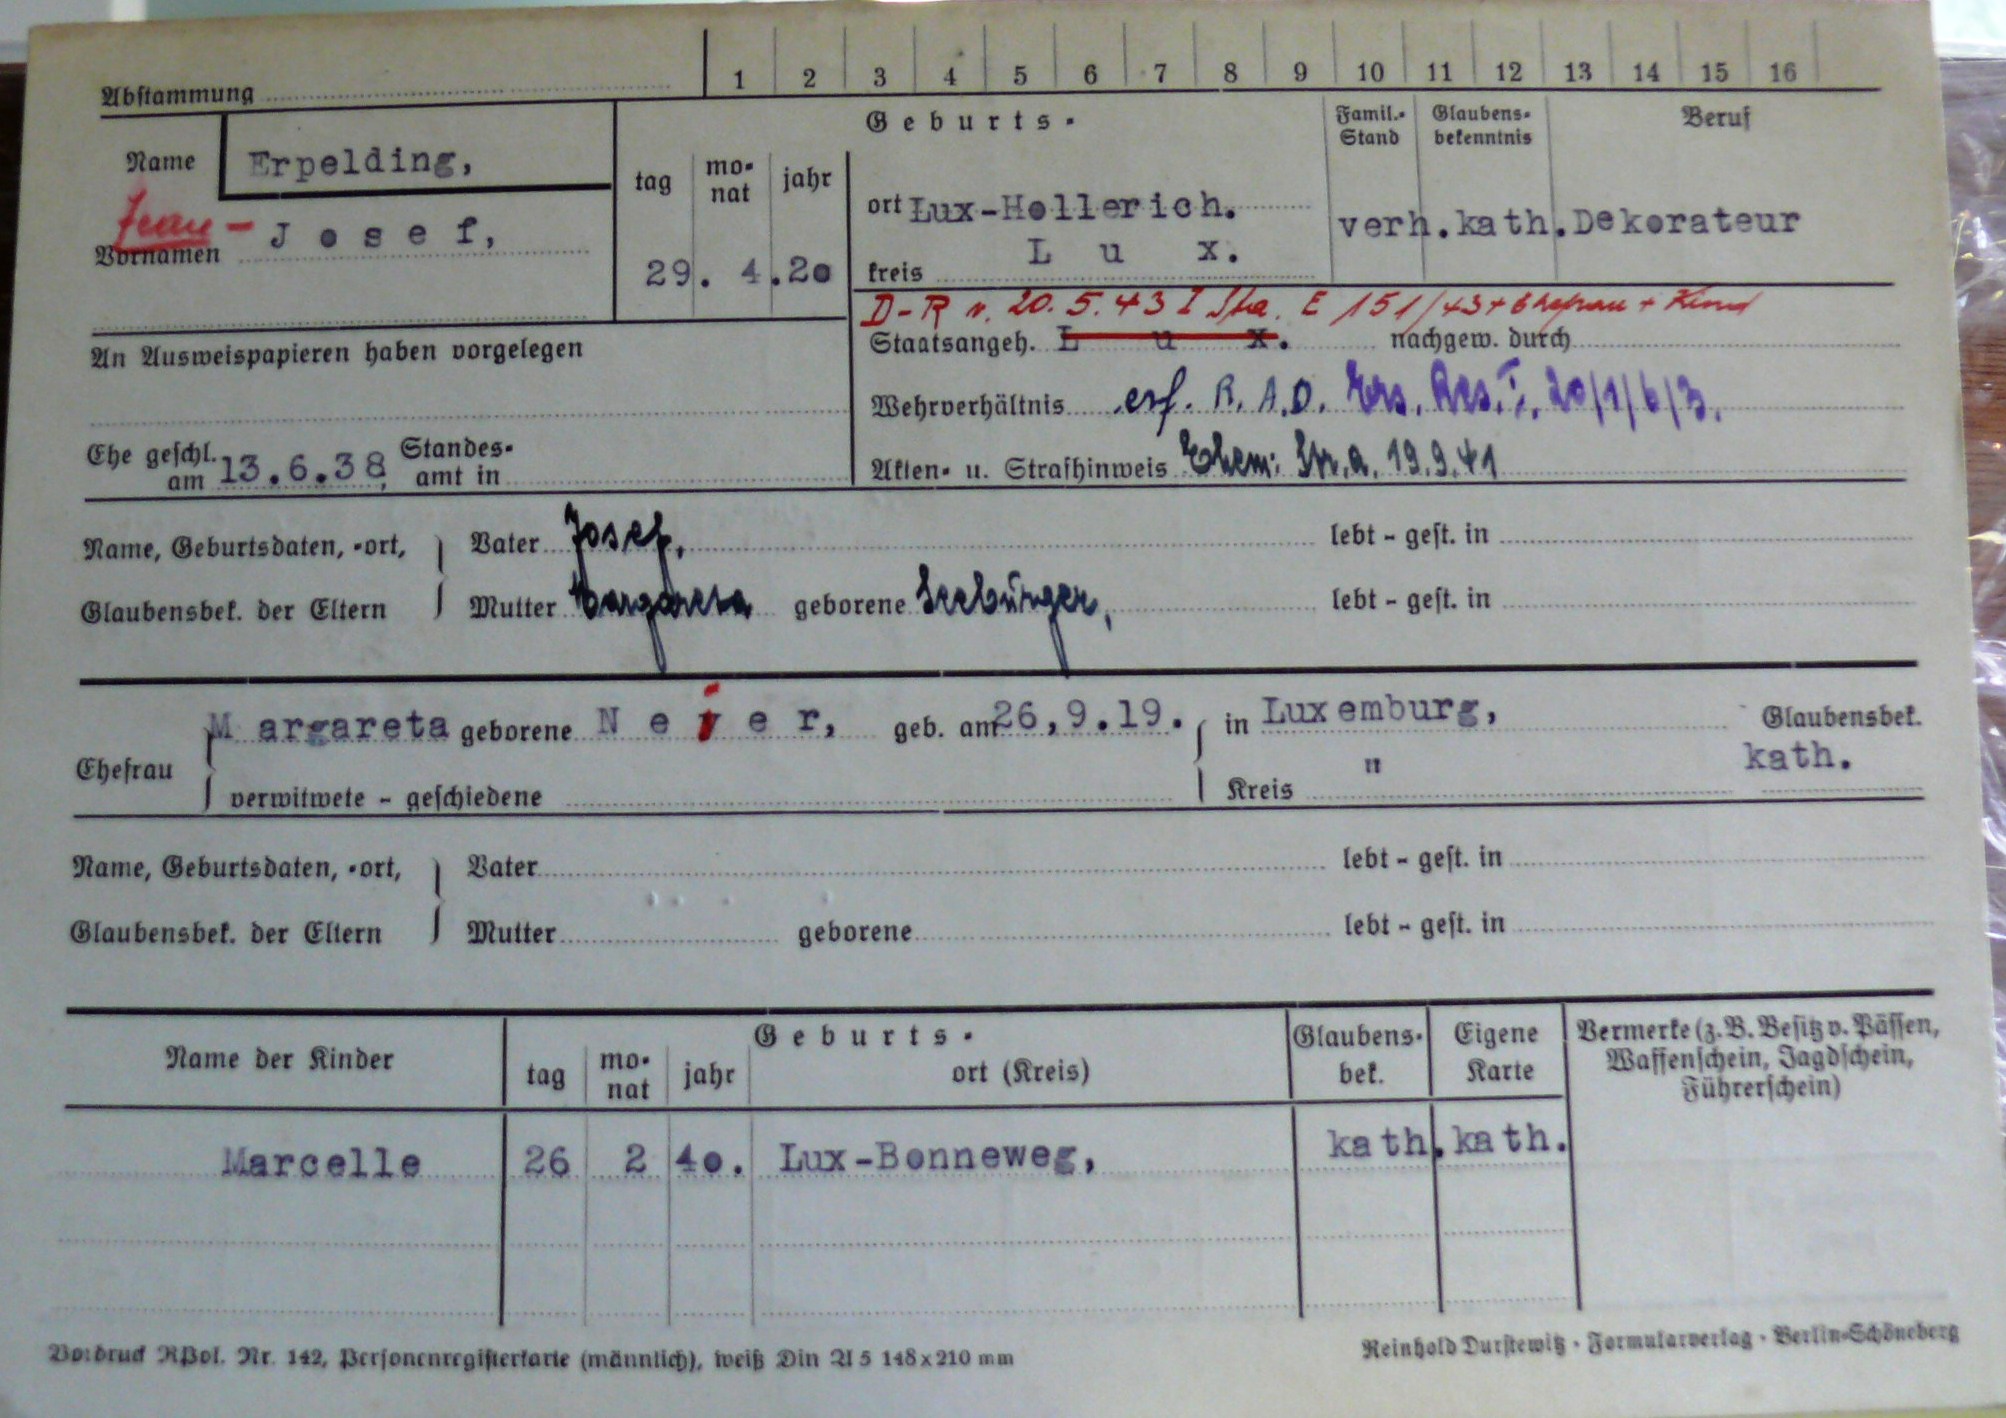 1 2 3 4 5 6 7 8 9 10 11 12 13 14 15 16
Abstammung
Name Erpelding,
Jean - Josef,
Vornamen
Geburts-
tag monat jahr
29. 4.20
ort Lux-Hollerich.
kreis Lux.
Famil.-Stand
verh.
Glaubens-bekenntnis
kath.
Beruf
Dekorateur
D-R v. 20.5.43 I Sta. E 151/43 + Ehefrau + Kind
An Ausweispapieren haben vorgelegen
Staatsangeh. Lux. nachgew. durch
Wehrverhältnis erf. R.A.D. Ers. Res. I, 20/1/6/3.
Ehe geschl. am 13.6.38, Standesamt in
Akten- u. Strafhinweis Ehem: Str.a. 19.9.41
Name, Geburtsdaten, -ort, Vater Josef, lebt - gest. in
Glaubensbek. der Eltern Mutter Margareta geborene Seebürger, lebt - gest. in
Ehefrau Margareta geborene Neier, geb. am 26,9.19. in Luxemburg, Glaubensbek.
" kath.
verwitwete - geschiedene Kreis
Name, Geburtsdaten, -ort, Vater lebt - gest. in
Glaubensbek. der Eltern Mutter geborene lebt - gest. in
Name der Kinder
Geburts-
tag monat jahr ort (Kreis)
Glaubens-bek.
Eigene Karte
Vermerke (z. B. Besitz v. Pässen,
Waffenschein, Jagdschein,
Führerschein)
Marcelle 26 2 40. Lux-Bonneweg, kath. kath.
Vordruck RPol. Nr. 142, Personenregisterkarte (männlich), weiß Din A 5 148x210 mm
Reinhold Durstewitz · Formularverlag · Berlin-Schöneberg